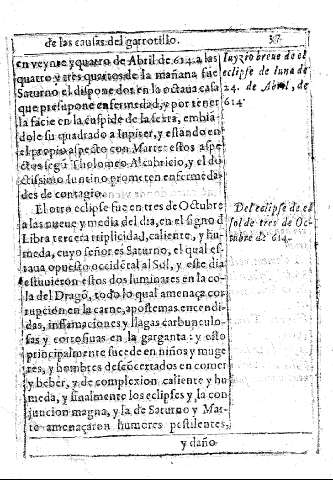 de las causas del garrotillo. 37
en veynte y quatro de Abril de 614. a las
quatro y tres quartos de la mañana fue
Saturno el dispone dor en la octaua casa
que presupone enfermedad, y por tener
la facie en la cuspide de la sexta, embiã
dole su quadrado a Iupiter, y estando en
el propio aspecto con Marte: estos aspe
ctos segũ Tholomeo Alcabricio, y el do
ctissimo Iuntino prometen enfermeda
des de contagio.
El otro eclipse fue en tres de Octubre
a las nueue y media del dia, en el signo d
Libra tercera triplicidad, caliente, y hu
meda, cuyo señor es Saturno, el qual es
taua opuesto occidẽtal al Sol, y este dia
estuuieron estos dos luminares en la co
la del Dragõ, todo lo qual amenaça cor
rupcion en la carne, apostemas encendi
das, inflamaciones y llagas carbunculo
sas y cortosiuas en la garganta: y esto
principalmente sucede en niños y muge
res, y hombres descõcertados en comer
y beber, y de complexion caliente y hu
meda, y finalmente los eclipses y la con
juncion magna, y la de Saturno y Mar-
te amenaçaron humores pestilentes,
y daño
Iuyzio breue de el
eclipse de luna de
24. de Abril, de
614
Del eclipse de el
sol de tres de Oc-
tubre de 614.